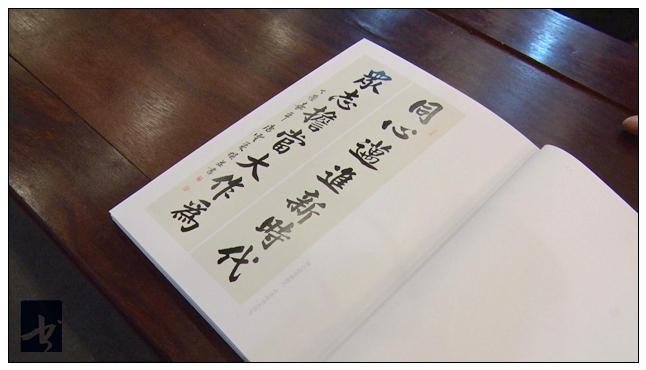 同心邁進新時代
眾志擔當大作為
书